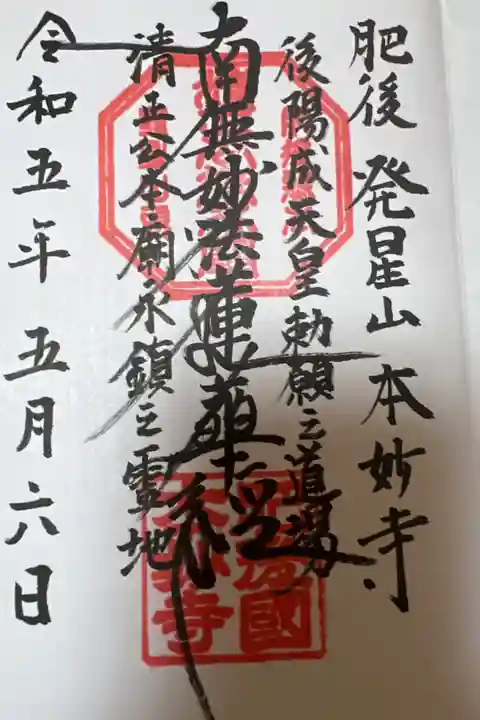 肥後 発星山 本妙寺
後陽成天皇勅願之道場
南無妙法蓮華経
清正公本廟永鎮之霊地
令和五年 五月六日